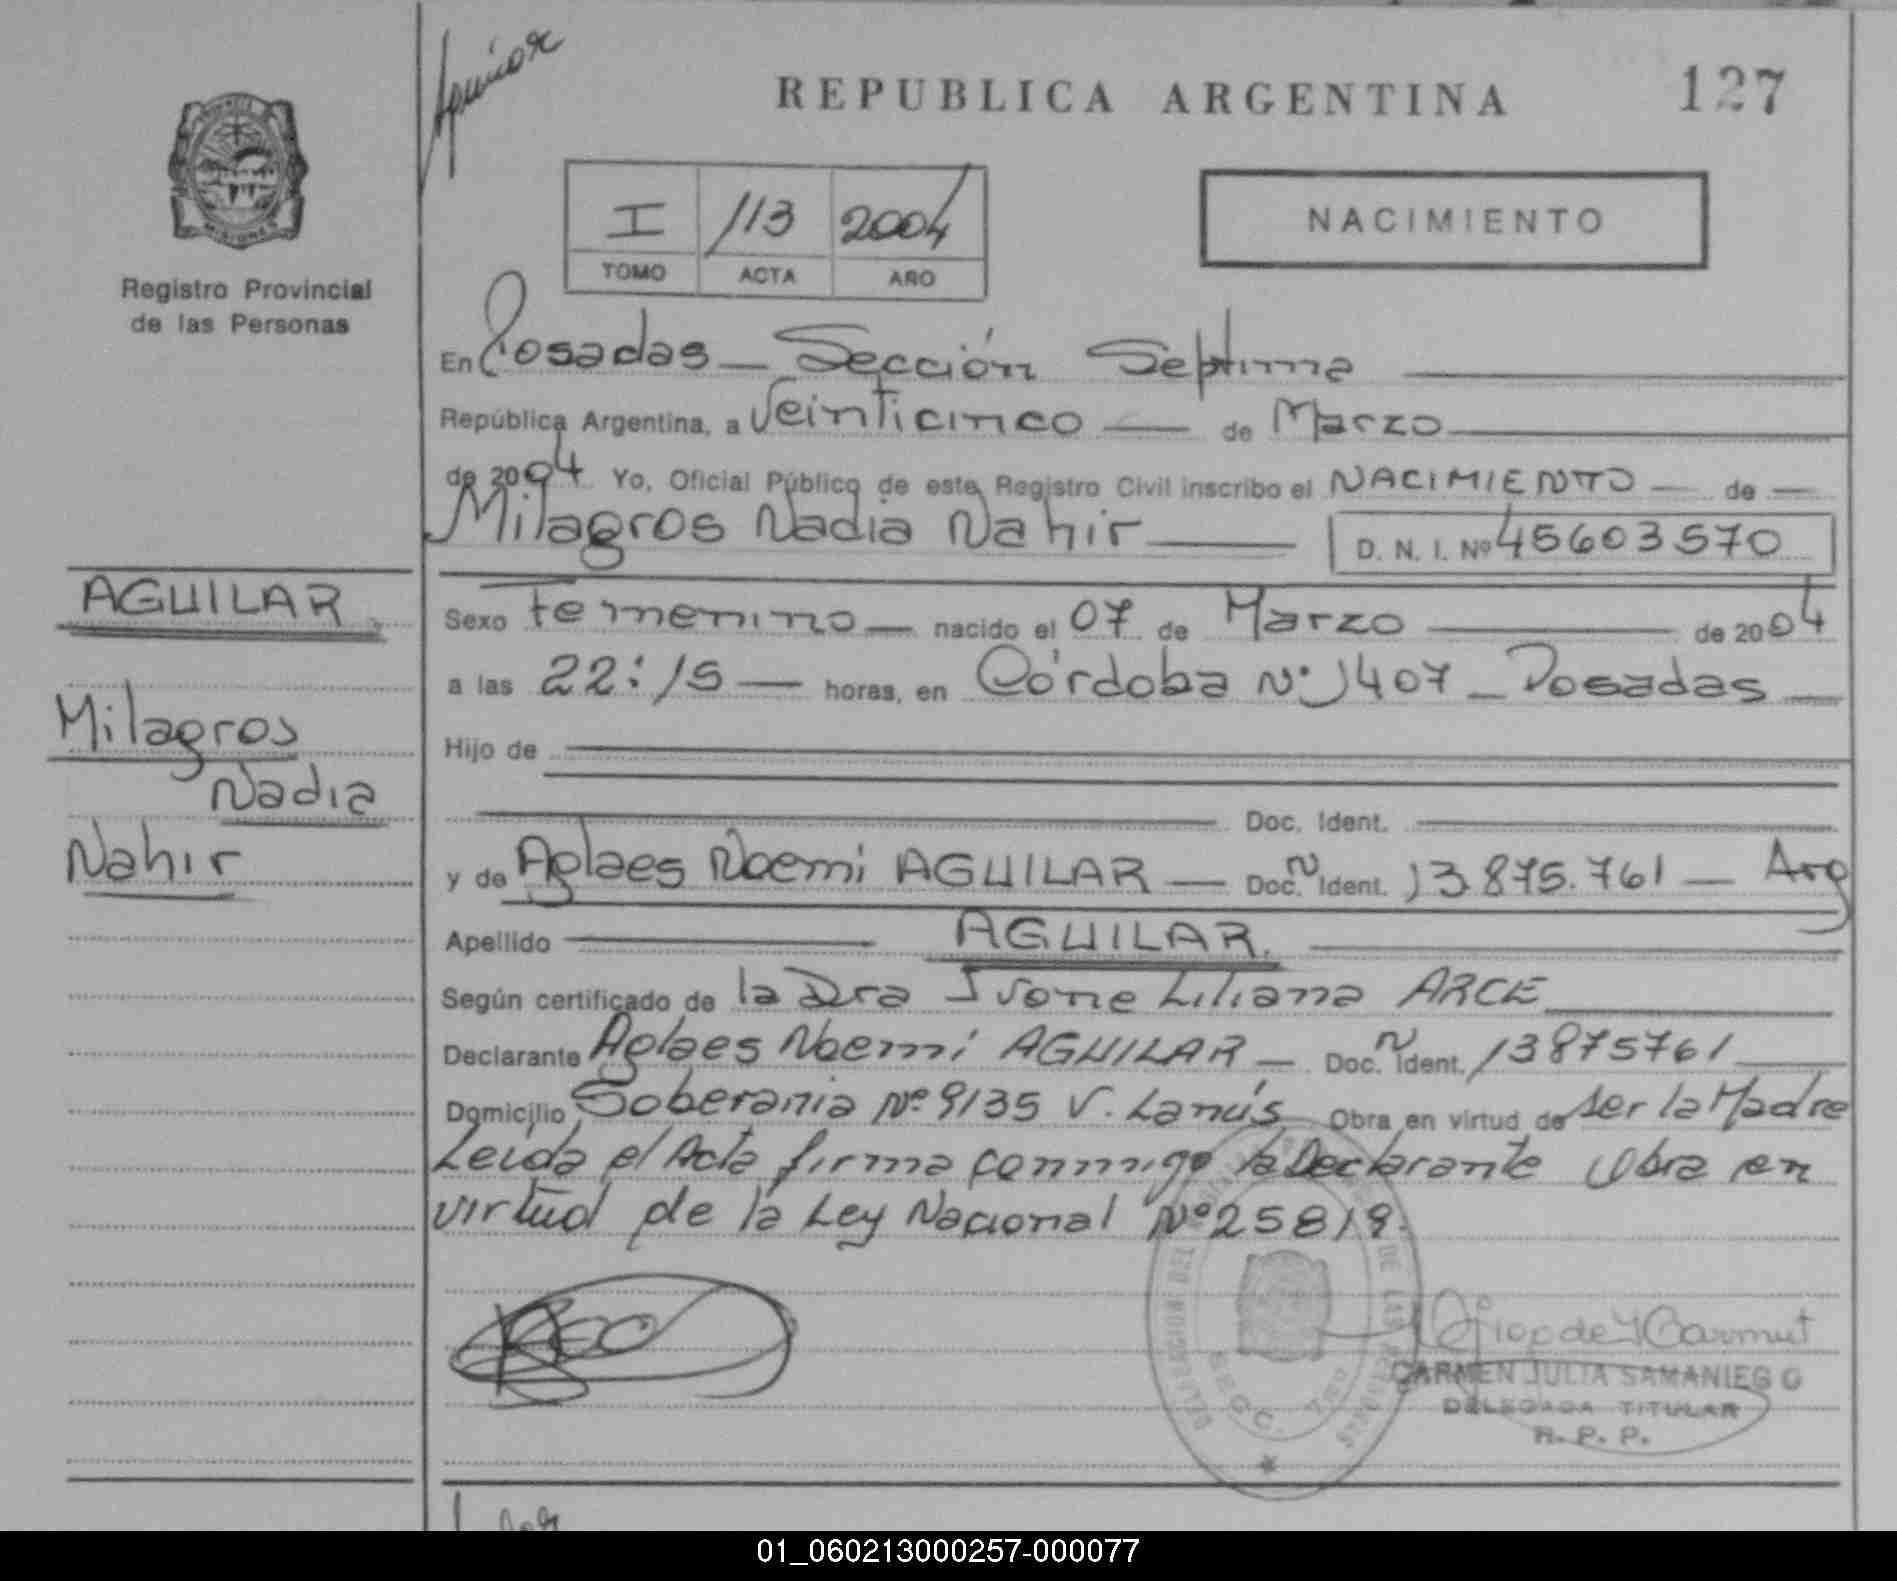 REPUBLICA ARGENTINA
127
MISIONES
Registro Provincial
de las Personas
I 113 2004
TOMO ACTA AÑO
NACIMIENTO
En Posadas - Sección Septima
República Argentina, a Veinticinco de Marzo
de 2004 Yo, Oficial Público de este Registro Civil inscribo el NACIMIENTO de
Milagros Nadia Nahir D. N. I. Nº 45603570
AGUILAR
Milagros
Nadia
Nahir
Sexo Femenino nacido el 07 de Marzo de 2004
a las 22:15 horas, en Córdoba Nº 1407 - Posadas
Hijo de
Doc. Ident.
y de Aglaes Noemi AGUILAR - Doc. N Ident. 13.875.761 - Arg
Apellido AGUILAR.
Según certificado de la Dra Ivone Liliana ARCE
Declarante Aglaes Noemi AGUILAR - Doc. N Ident. 13875761
Domicilio Soberania Nº 9135 V. Lanús Obra en virtud de ser la Madre
Leida el Acta firma conmigo la Declarante Obra en
virtud de la Ley Nacional Nº 25819.
DELEGACION DEL DE LAS PERSONAS
SECC. 7
CARMEN JULIA SAMANIEGO
DELEGADA TITULAR
R. P. P.
01_060213000257-000077